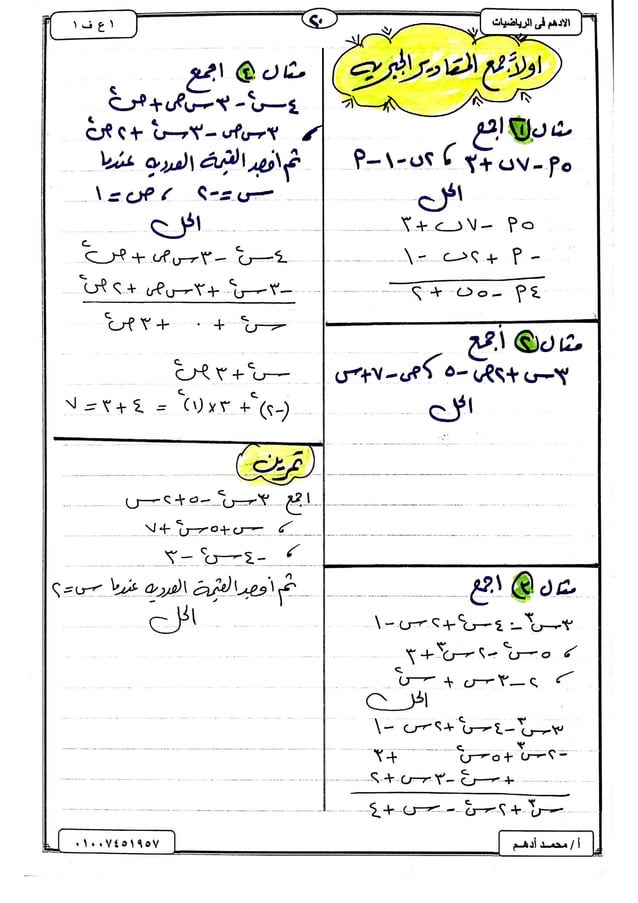 الادهم فى الرياضيات
٢٠
١ ع ف ١
اولاً جمع المقادير الجبرية
مثال ١ اجمع
٥م - ٧ن + ٣ ، ٢ن - ١ - م
الحل
٥م - ٧ن + ٣
- م + ٢ن - ١
٤م - ٥ن + ٢
مثال ٢ أجمع
٣س + ٢ص - ٥ ، ص - ٧ + س
الحل
مثال ٣ اجمع
٣س٣ - ٤س٢ + ٢س - ١
، ٥س٢ - ٢س٣ + ٣
، ٢ - ٣س + س٢
الحل
٣س٣ - ٤س٢ + ٢س - ١
- ٢س٣ + ٥س٢ + ٣
+ س٢ - ٣س + ٢
س٣ + ٢س٢ - س + ٤
مثال ٤ اجمع
٤س٢ - ٣س ص + ص٢
، ٣س ص - ٣س٢ + ٢ص٢
ثم أوجد القيمة العددية عندما
س = -٢ ، ص = ١
الحل
٤س٢ - ٣س ص + ص٢
-٣س٢ + ٣س ص + ٢ص٢
س٢ + ٠ + ٣ص٢
س٢ + ٣ص٢
(-٢)٢ + ٣×(١)٢ = ٤ + ٣ = ٧
تمرين
اجمع ٣س٢ - ٥ + ٢س
، س + ٥س٢ + ٧
، -٤س٢ - ٣
ثم أوجد القيمة العددية عندما س = ٢
الحل
أ / محمد أدهم
٠١٠٠٧٤٥١٩٥٧